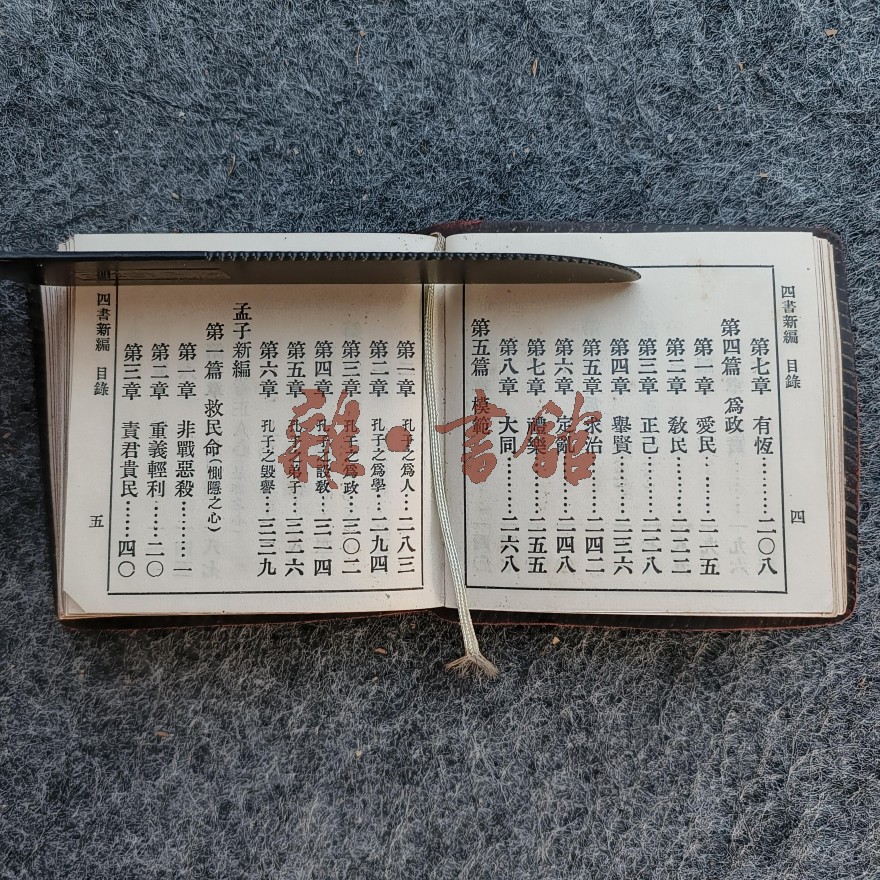 四書新編 目錄 四
第七章 有恆………二〇八
第四篇 爲政
第一章 愛民……二一五
第二章 敎民……二二二
第三章 正己……二二八
第四章 舉賢……二三六
第五章 求治……二四二
第六章 定亂……二四八
第七章 禮樂……二五五
第八章 大同……二六八
第五篇 模範
第一章 孔子之爲人…二八三
第二章 孔子之爲學…二九四
第三章 孔子之爲政…三〇二
第四章 孔子之設敎…三一四
第五章 孔子弟子…三二六
第六章 孔子之毀譽…三三九
孟子新編
第一篇 救民命(惻隱之心)
第一章 非戰惡殺………一
第二章 重義輕利……二〇
第三章 責君貴民……四〇
四書新編 目錄 五
雜·書館